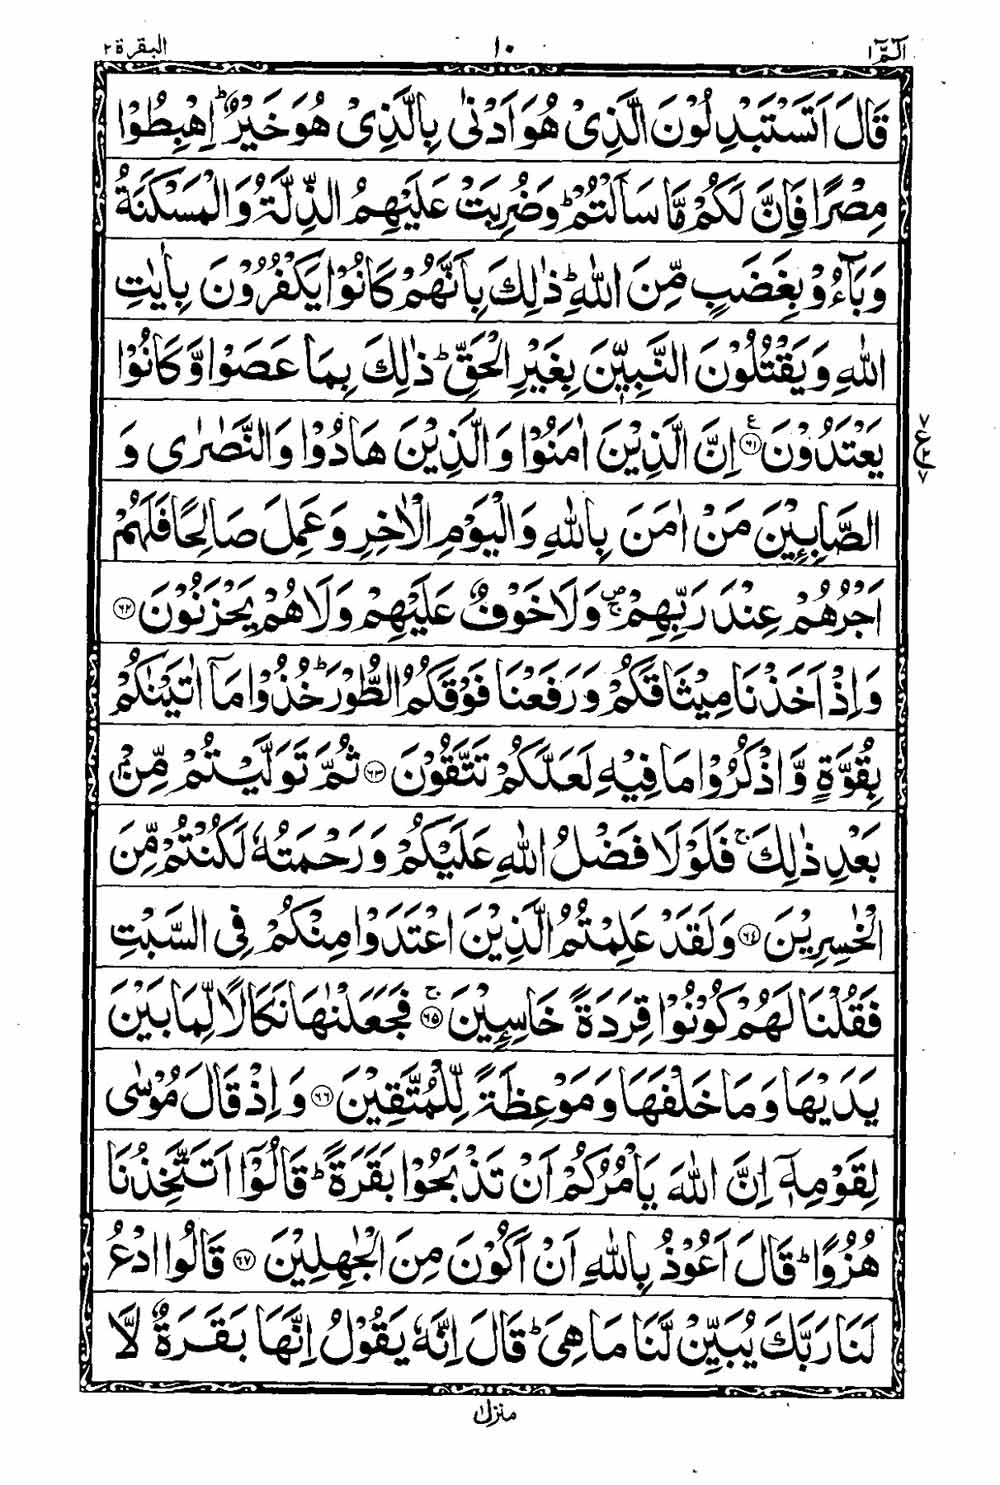 الٓمّٓ ١ ١٠ البقرة ٢
قَالَ اَتَسْتَبْدِلُوْنَ الَّذِیْ هُوَ اَدْنٰی بِالَّذِیْ هُوَ خَیْرٌ ؕ اِهْبِطُوْا
مِصْرًا فَاِنَّ لَكُمْ مَّا سَاَلْتُمْ ؕ وَضُرِبَتْ عَلَیْهِمُ الذِّلَّةُ وَالْمَسْكَنَةُ
وَبَآءُوْ بِغَضَبٍ مِّنَ اللّٰهِ ؕ ذٰلِكَ بِاَنَّهُمْ كَانُوْا یَكْفُرُوْنَ بِاٰیٰتِ
اللّٰهِ وَیَقْتُلُوْنَ النَّبِیّٖنَ بِغَیْرِ الْحَقِّ ؕ ذٰلِكَ بِمَا عَصَوْا وَّكَانُوْا
یَعْتَدُوْنَ ﴿٦١﴾ ع اِنَّ الَّذِیْنَ اٰمَنُوْا وَالَّذِیْنَ هَادُوْا وَالنَّصٰرٰی وَ
٧ ع ٢ ٧
الصَّابِـِٕیْنَ مَنْ اٰمَنَ بِاللّٰهِ وَالْیَوْمِ الْاٰخِرِ وَعَمِلَ صَالِحًا فَلَهُمْ
اَجْرُهُمْ عِنْدَ رَبِّهِمْ ۪ۚ وَلَا خَوْفٌ عَلَیْهِمْ وَلَا هُمْ یَحْزَنُوْنَ ﴿٦٢﴾
وَاِذْ اَخَذْنَا مِیْثَاقَكُمْ وَرَفَعْنَا فَوْقَكُمُ الطُّوْرَ ؕ خُذُوْا مَاۤ اٰتَیْنٰكُمْ
بِقُوَّةٍ وَّاذْكُرُوْا مَا فِیْهِ لَعَلَّكُمْ تَتَّقُوْنَ ﴿٦٣﴾ ثُمَّ تَوَلَّیْتُمْ مِّنْۢ
بَعْدِ ذٰلِكَ ۚ فَلَوْلَا فَضْلُ اللّٰهِ عَلَیْكُمْ وَرَحْمَتُهٗ لَكُنْتُمْ مِّنَ
الْخٰسِرِیْنَ ﴿٦٤﴾ وَلَقَدْ عَلِمْتُمُ الَّذِیْنَ اعْتَدَوْا مِنْكُمْ فِی السَّبْتِ
فَقُلْنَا لَهُمْ كُوْنُوْا قِرَدَةً خَاسِـِٕیْنَ ﴿٦٥﴾ ۚ فَجَعَلْنٰهَا نَكَالًا لِّمَا بَیْنَ
یَدَیْهَا وَمَا خَلْفَهَا وَمَوْعِظَةً لِّلْمُتَّقِیْنَ ﴿٦٦﴾ وَاِذْ قَالَ مُوْسٰی
لِقَوْمِهٖۤ اِنَّ اللّٰهَ یَاْمُرُكُمْ اَنْ تَذْبَحُوْا بَقَرَةً ؕ قَالُوْۤا اَتَتَّخِذُنَا
هُزُوًا ؕ قَالَ اَعُوْذُ بِاللّٰهِ اَنْ اَكُوْنَ مِنَ الْجٰهِلِیْنَ ﴿٦٧﴾ قَالُوا ادْعُ
لَنَا رَبَّكَ یُبَیِّنْ لَّنَا مَا هِیَ ؕ قَالَ اِنَّهٗ یَقُوْلُ اِنَّهَا بَقَرَةٌ لَّا
منزل ١